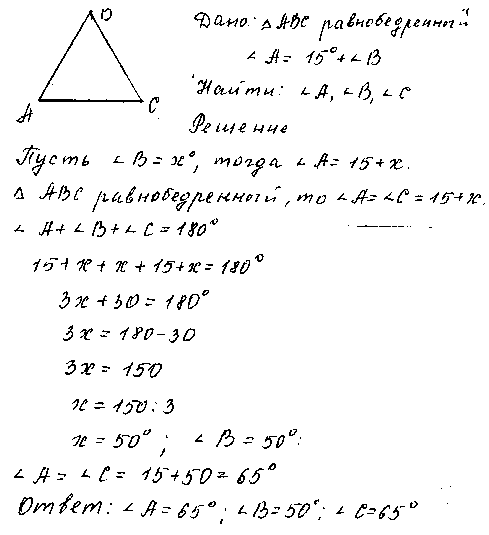 B
A
C
Дано: △ ABC равнобедренный
∠ A = 15° + ∠ B
Найти: ∠ A, ∠ B, ∠ C
Решение
Пусть ∠ B = x°, тогда ∠ A = 15 + x.
△ ABC равнобедренный, то ∠ A = ∠ C = 15 + x.
∠ A + ∠ B + ∠ C = 180°
15 + x + x + 15 + x = 180°
3x + 30 = 180°
3x = 180 - 30
3x = 150
x = 150 : 3
x = 50° ; ∠ B = 50° :
∠ A = ∠ C = 15 + 50 = 65°
Ответ: ∠ A = 65° ; ∠ B = 50° ; ∠ C = 65°